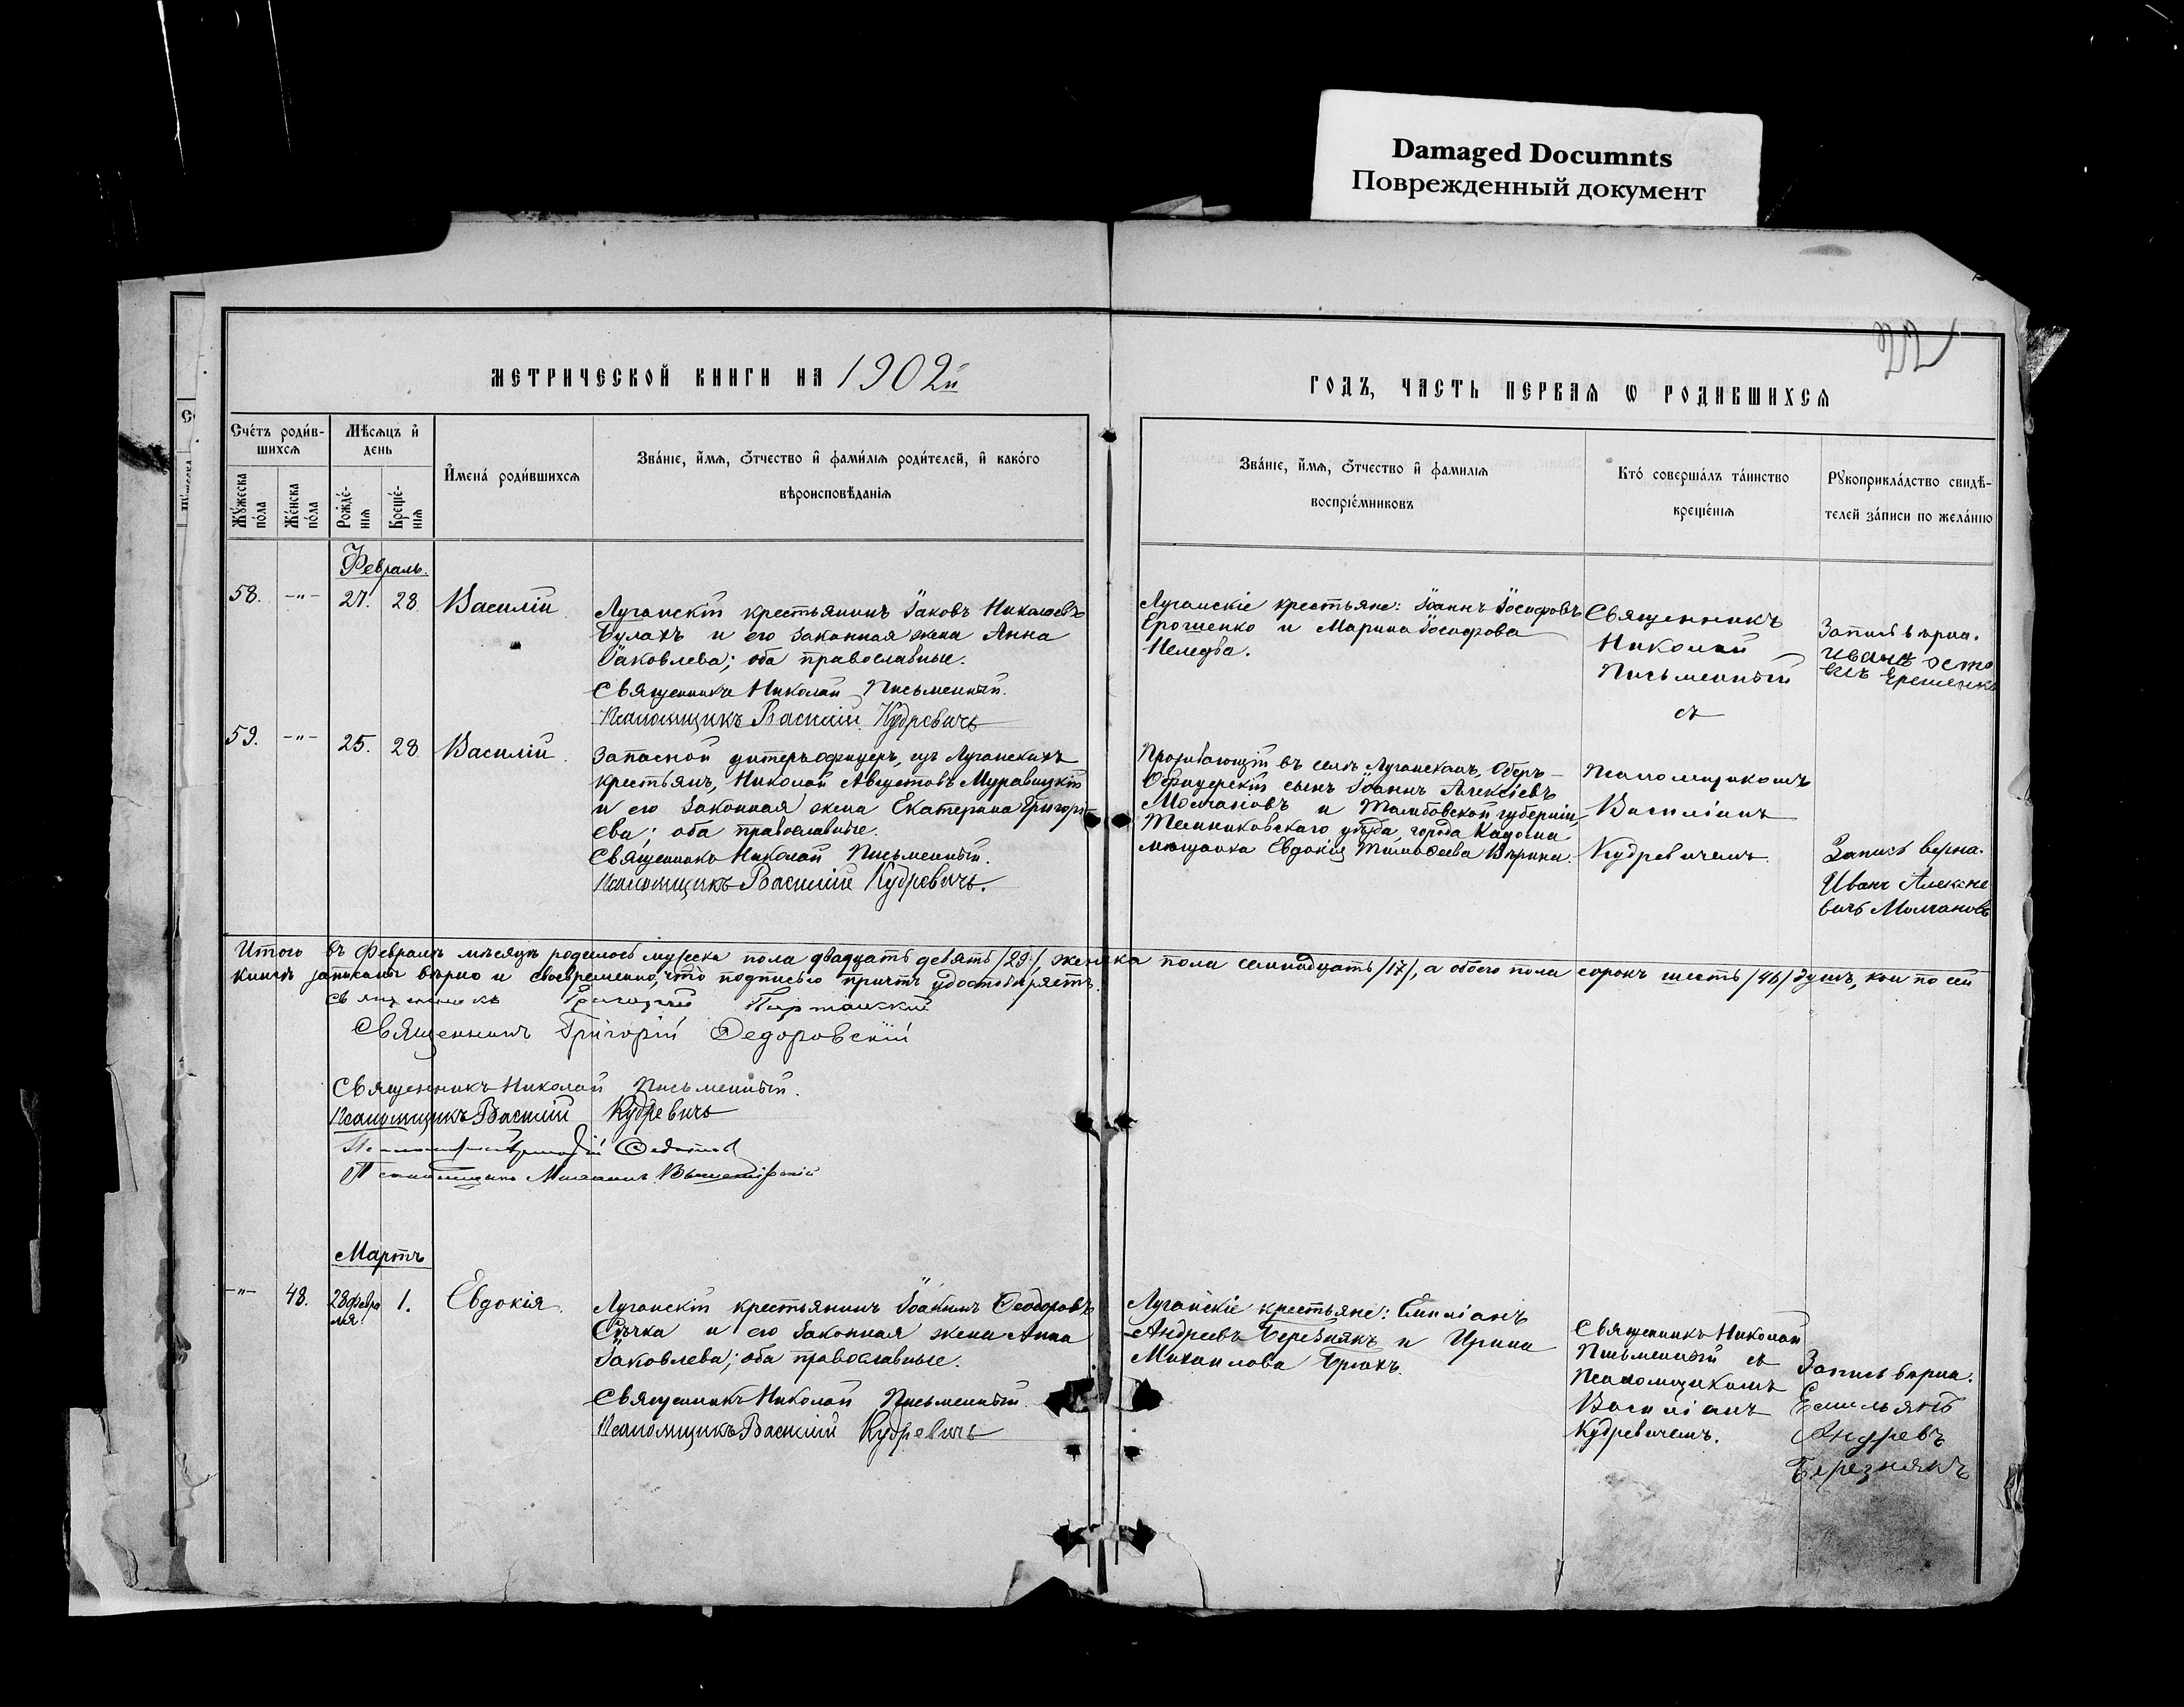 Damaged Documnts
Поврежденный документ
222
МЕТРИЧЕСКОЙ КНИГИ НА 1902й
ГОДЪ, ЧАСТЬ ПЕРВАЯ Ѡ РОДИВШИХСЯ
Счетъ родив-
шихся
Мѣсяцъ и
день
Мужеска
пола
Женска
пола
Рожде-
нія
Креще-
нія
Имена родившихся
Званіе, имя, отчество и фамилія родителей, и какого
вѣроисповѣданія
Званіе, имя, отчество и фамилія
воспріемниковъ
Кто совершалъ таинство
крещенія
Рукоприкладство свидѣ-
телей записи по желанію
Февраль.
58. -"- 27. 28. Василій
Луганскій крестьянинъ Іаковъ Николаевъ
Булахъ и его законная жена Анна
Іаковлева; оба православные.
Священникъ Николай Письменный.
Псаломщикъ Василій Кудревичъ
Луганскіе крестьяне: Іоаннъ Іосифовъ
Ерошенко и Марина Іосифова
Священникъ
Николай
Письменный
съ
Запись вѣрна.
Иванъ
59. -"- 25. 28 Василій.
Запасной унтеръ-офицеръ, изъ Луганскихъ
крестьянъ, Николай Августовъ Муравицкій
и его законная жена Екатерина Григорі-
ева; оба православные.
Священникъ Николай Письменный.
Псаломщикъ Василій Кудревичъ.
Проживающій въ селѣ Луганскомъ, Оберъ-
Офицерскій сынъ Іоаннъ Алексіевъ
Молчановъ и Тамбовской губерніи,
Темниковскаго уѣзда, города Кадома
мѣщанка Евдокія Тимоѳеева
Псаломщикомъ
Василіемъ
Кудревичемъ.
Запись верна.
Иванъ Алексее
вичъ Молчановъ
Итого въ Февралѣ мѣсяцѣ родилось мужеска пола двадцать девять /29/, женска пола семнадцать /17/, а обоего пола сорокъ шесть /46/ душъ, кои по сей
книгѣ записаны вѣрно и своевременно, что подписью причтъ удостовѣряетъ.
Священникъ Григорій
Священникъ Григорій Ѳедоровскій
Священникъ Николай Письменный.
Псаломщикъ Василій Кудревичъ
Псаломщикъ
Мартъ
-"- 48. 28 февра
ля. 1. Евдокія.
Луганскій крестьянинъ Іоакимъ Ѳеодоровъ
Сѣчка и его законная жена Анна
Іаковлева; оба православные.
Священникъ Николай Письменный.
Псаломщикъ Василій Кудревичъ
Луганскіе крестьяне: Емиліанъ
Андреевъ Березнякъ и Ирина
Михаилова
Священникъ Николай
Письменный съ
Псаломщикомъ
Василіемъ
Кудревичемъ.
Запись вѣрна.
Емельянъ
Андревъ
Березнякъ